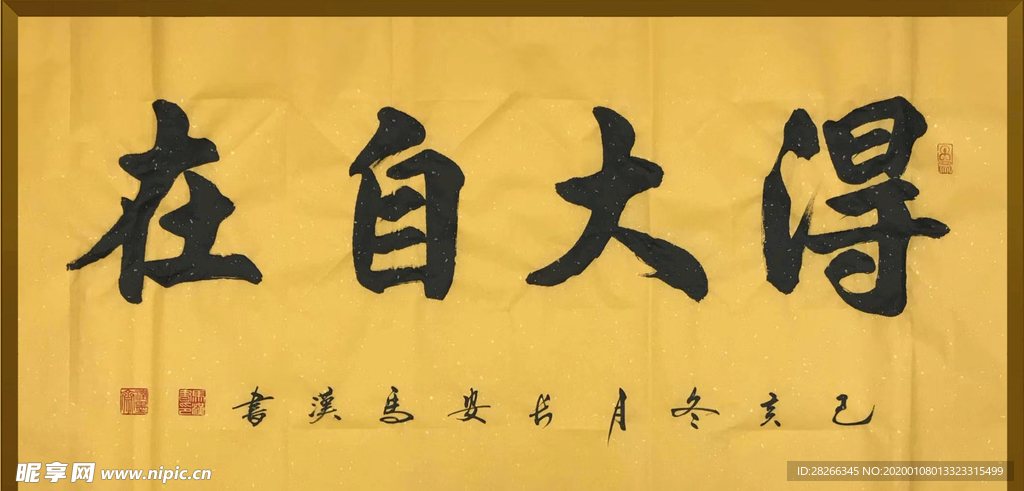 得大自在
己亥冬月长安马汉书
昵享网 www.nipic.cn
ID:28266345 NO:20200108013323315499